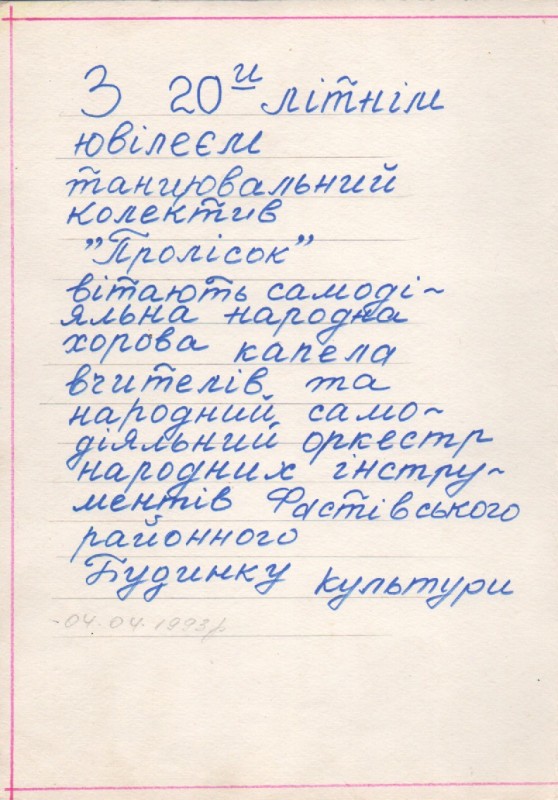 З 20и літнім
ювілеєм
танцювальний
колектив
"Пролісок"
вітають самоді-
яльна народна
хорова капела
вчителів та
народний само-
діяльний оркестр
народних інстру-
ментів Фастівського
районного
Будинку культури
04.04.1993р.